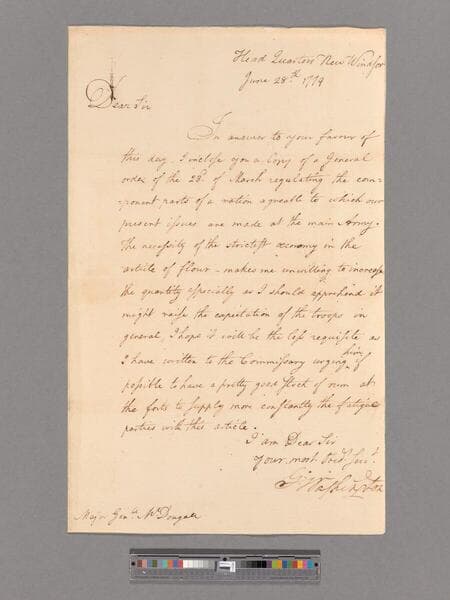 Head Quarters New Windsor
June 28th 1779
Dear Sir
In answer to your favour of
this day. I inclose you a Copy of a General
order of the 28th of March regulating the com=
ponent parts of a ration agreable to which our
present issues are made at the main Army.
The necessity of the strictest œconomy in the
article of flour - makes me unwilling to increase
the quantity especially as I should apprehend it
might raise the expectation of the troops in
general, I hope it will be the less requisite as
I have written to the Commissary urging him if
possible to have a pretty good stock of rum at
the forts to supply more constantly the fatigue
parties with this article.
I am Dear Sir
Your most Obedt Servt
Go Washington
Major Genl McDougall